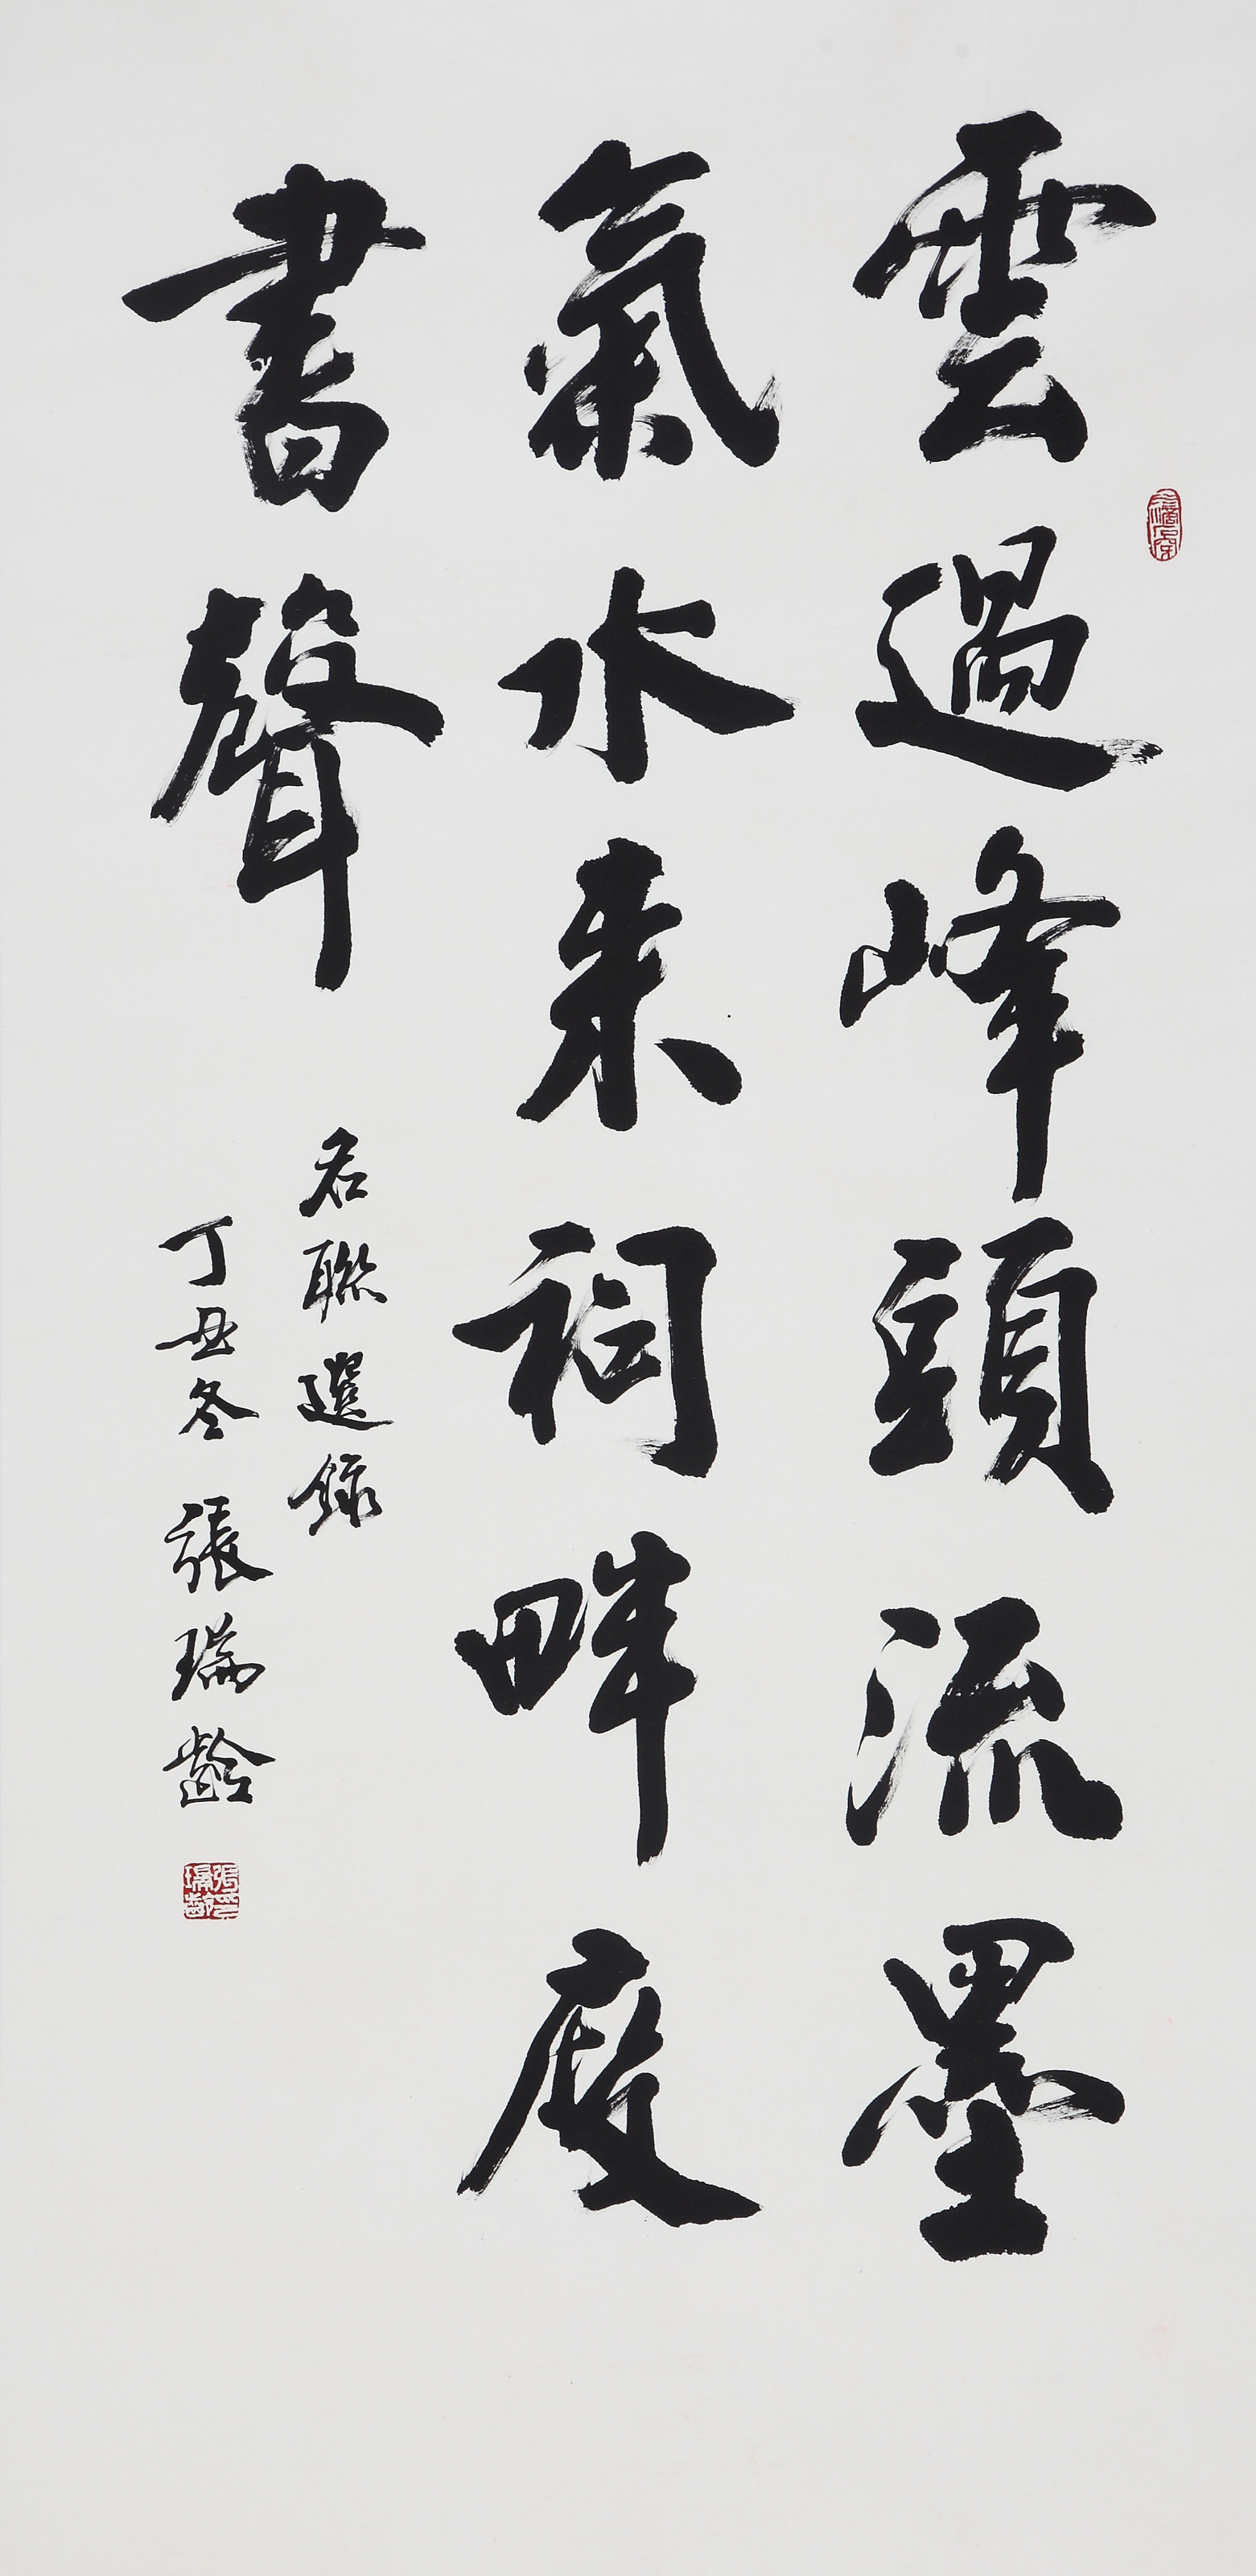 雲過峰頭流墨
氣水来祠畔度
書聲
名聯選錄
丁丑冬 張瑞齡